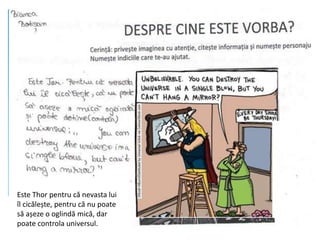 Bianca
Botișan
?
DESPRE CINE ESTE VORBA?
Cerință: privește imaginea cu atenție, citește informația și numește personaju
Numește indiciile care te-au ajutat.
Este Tor. Pentru că nevasta
lui îl cicălește, că nu poate
să așeze o mică oglindă
și poate
universul.,, You can
destroy the universe in a
single blow, but can't
hang a mirror?"
UNBELIEVABLE. YOU CAN DESTROY THE
UNIVERSE IN A SINGLE BLOW, BUT YOU
CAN'T HANG A MIRROR?
EVERY DAY SHOULD
BE THURSDAY!
Este Thor pentru că nevasta lui
îl cicălește, pentru că nu poate
să așeze o oglindă mică, dar
poate controla universul.